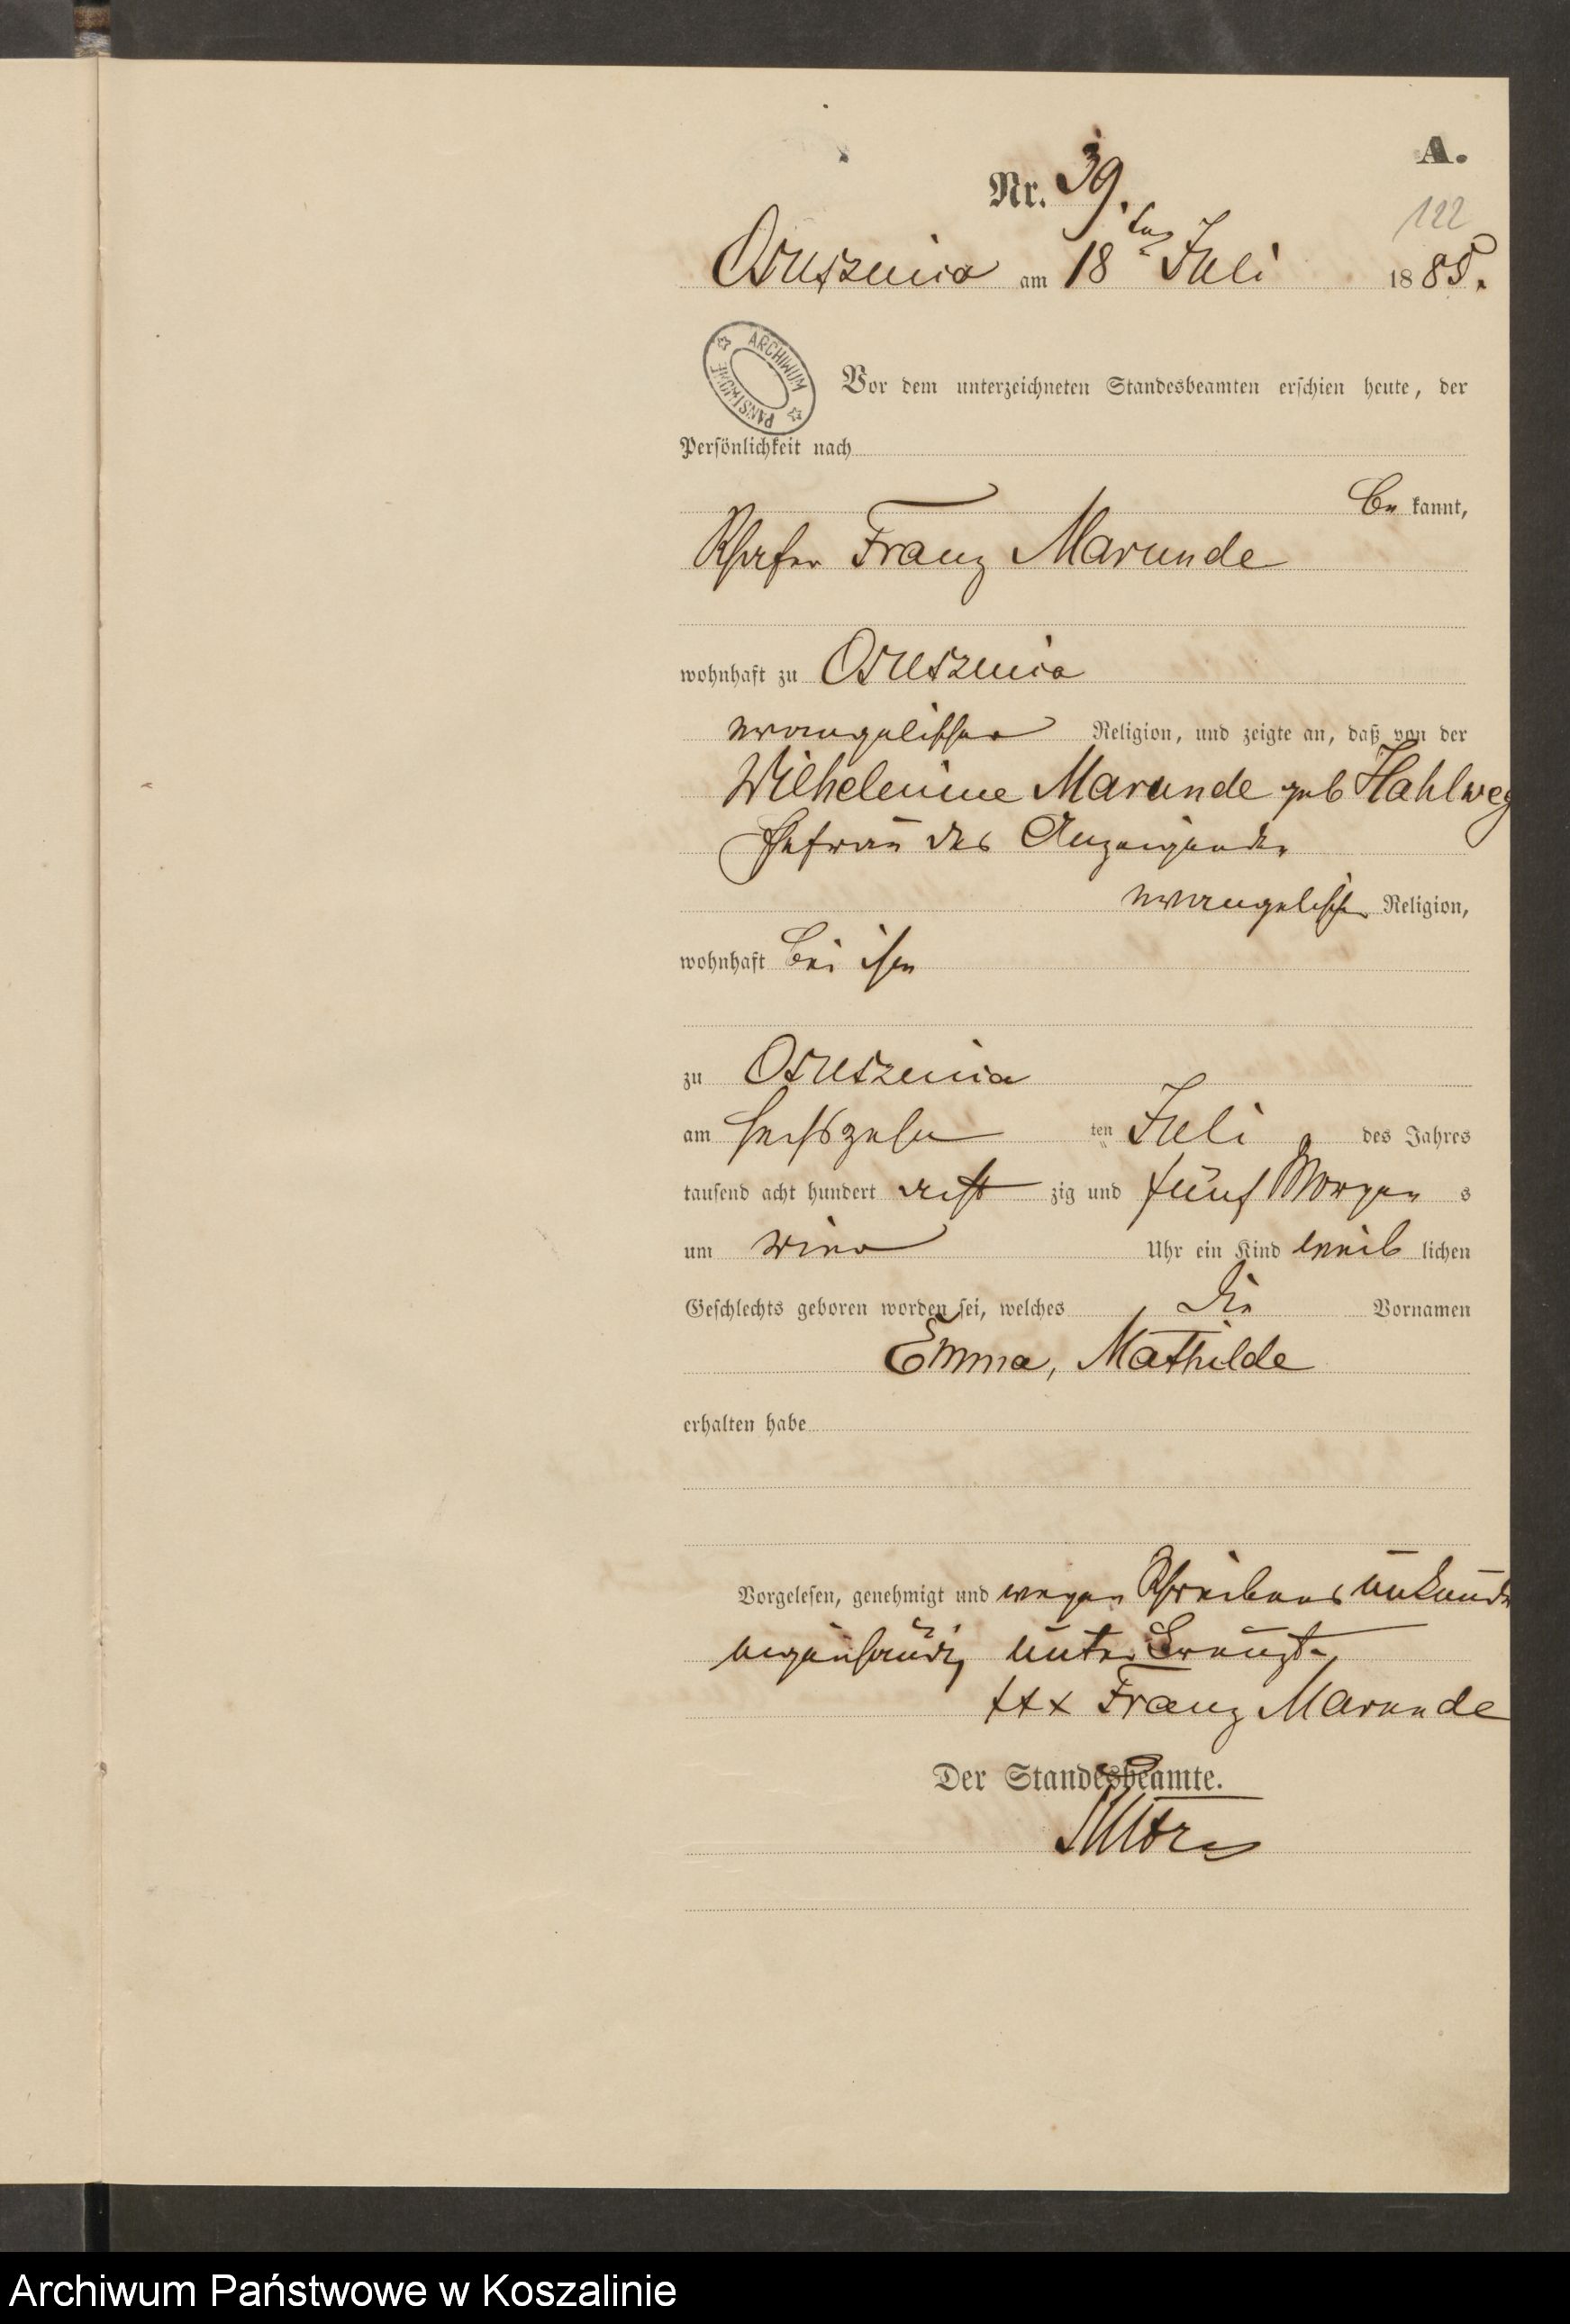 A.
Nr. 39.
122
Osusznica am 18ten Juli 1885.
ARCHIWUM PAŃSTWOWE
Vor dem unterzeichneten Standesbeamten erschien heute, der
Persönlichkeit nach
be kannt,
Schäfer Franz Marunde
wohnhaft zu Osusznica
evangelischer Religion, und zeigte an, daß von der
Wilhelmine Marunde geb Hahlweg
Ehefrau des Anzeigenden
evangelischer Religion,
wohnhaft bei ihm
zu Osusznica
am sechszehn ten Juli des Jahres
tausend acht hundert acht zig und fünf Morgen s
um vier Uhr ein Kind weib lichen
Geschlechts geboren worden sei, welches die Vornamen
Emma, Mathilde
erhalten habe
Vorgelesen, genehmigt und wegen Schreibens unkunde
eigenhändig unterkreuzt.
xxx Franz Marunde
Der Standesbeamte.
Archiwum Państwowe w Koszalinie